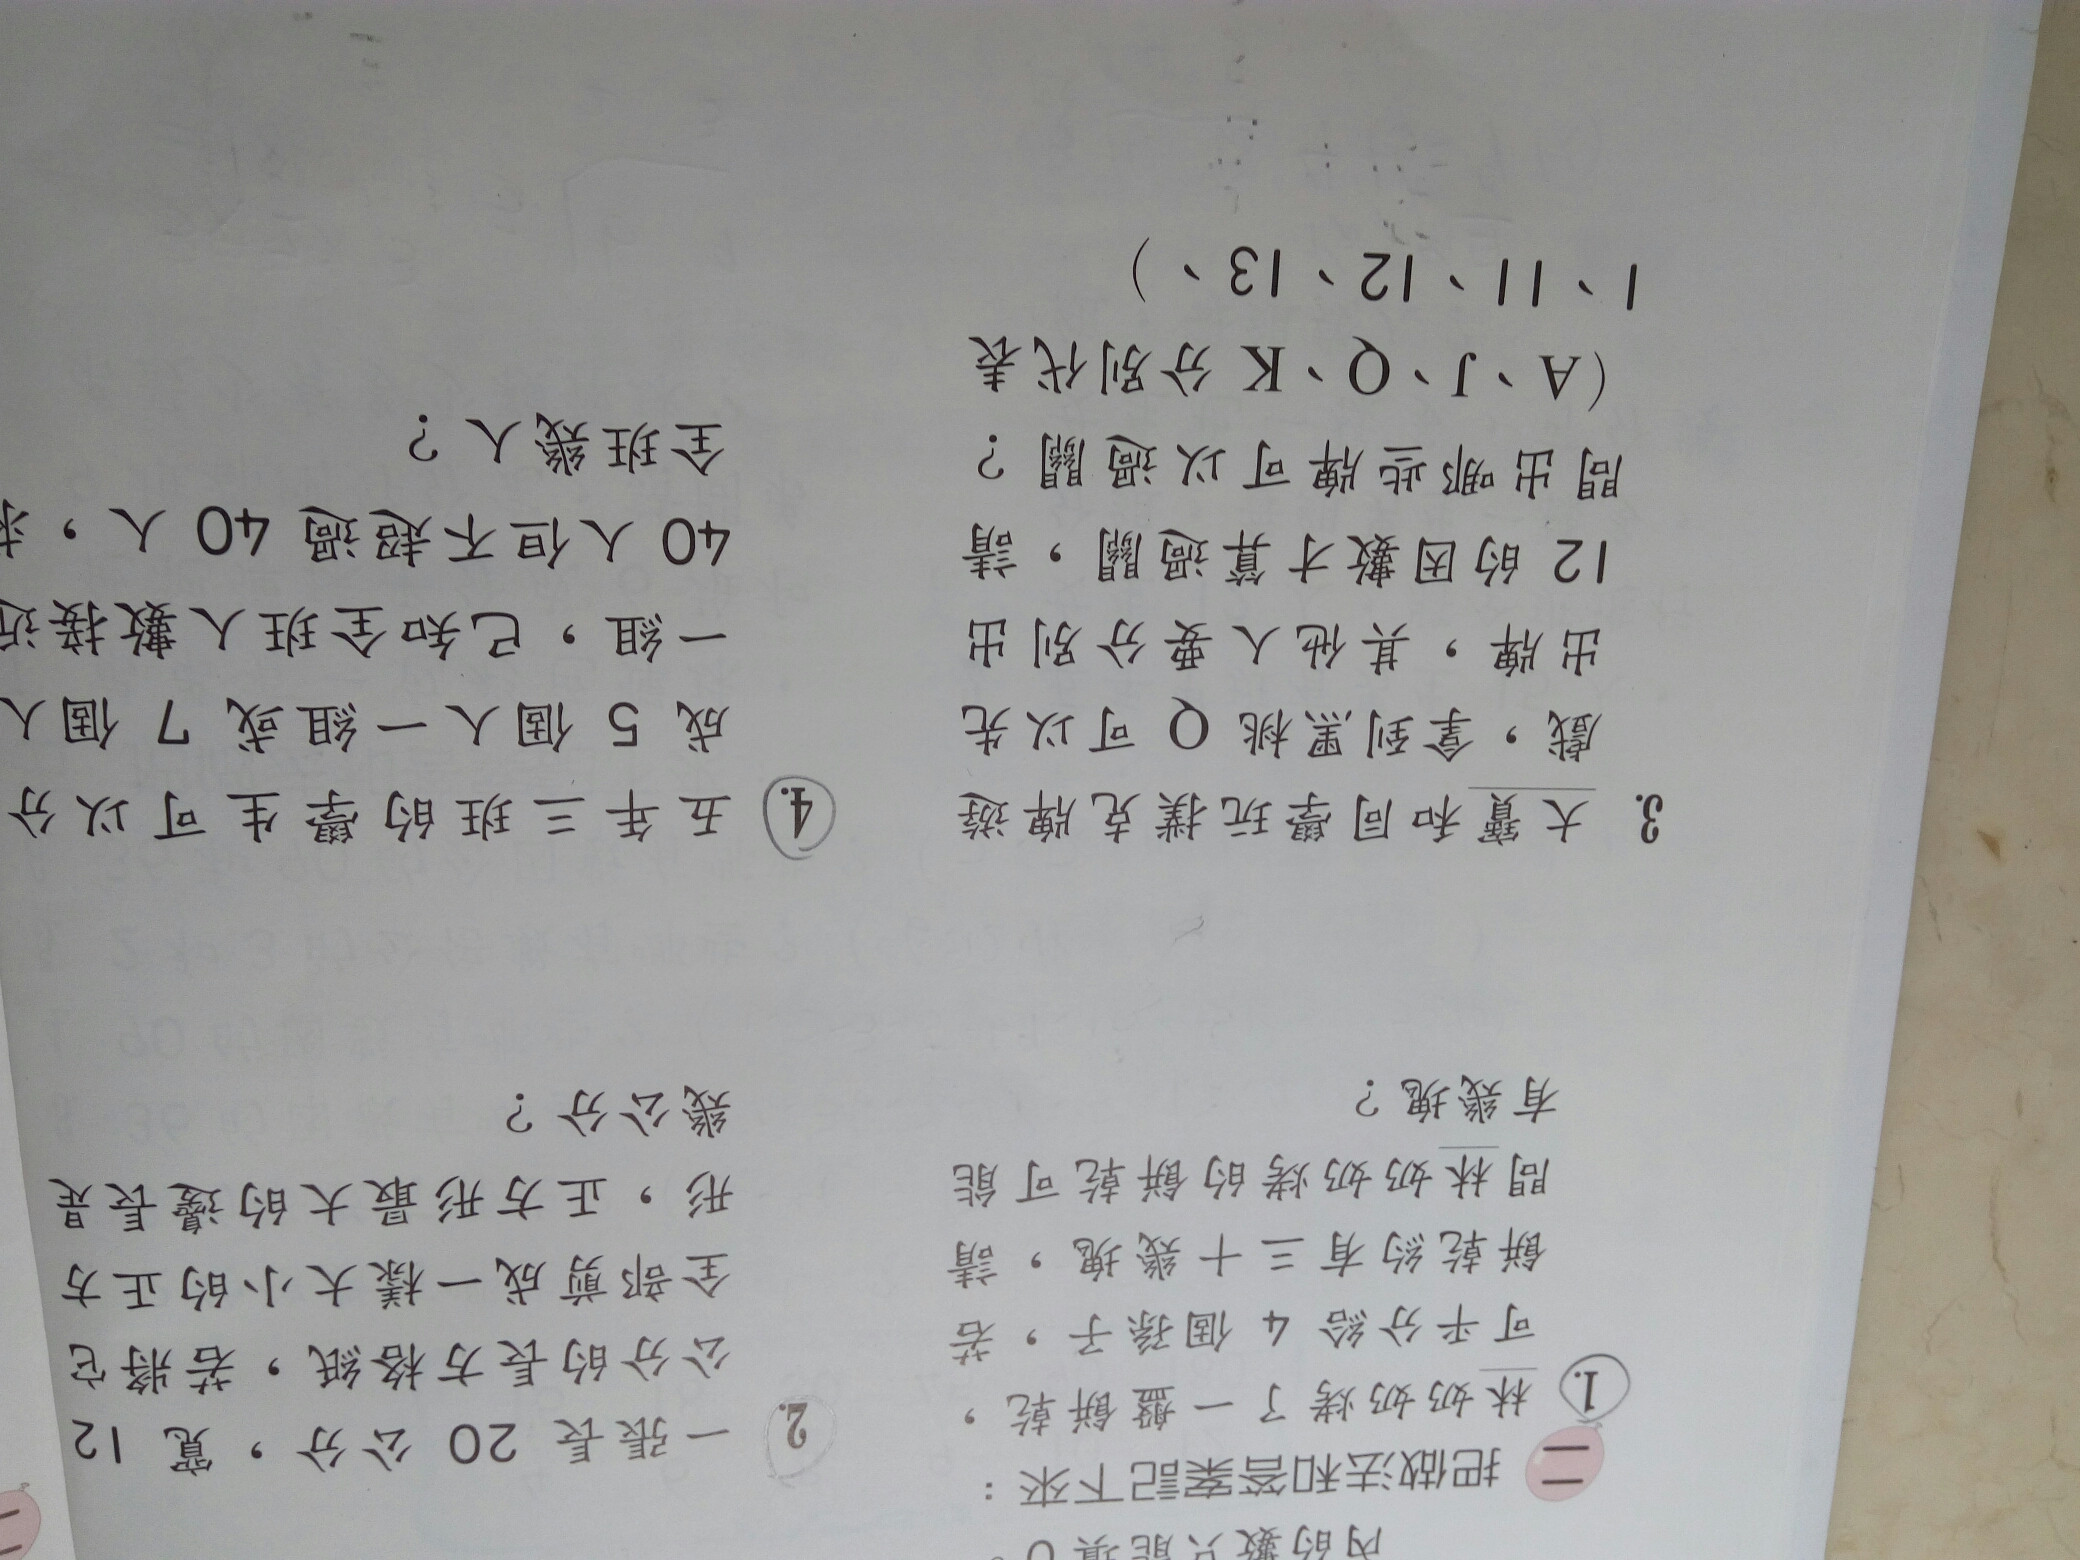 內的數只能填0。
二 把做法和答案記下來：
1. 林奶奶烤了一盤餅乾，
可平分給 4 個孫子，若
餅乾約有三十幾塊，請
問林奶奶烤的餅乾可能
有幾塊？
2. 一張長 20 公分，寬 12
公分的長方格紙，若將它
全部剪成一樣大小的正方
形，正方形最大的邊長是
幾公分？
3. 大寶和同學玩撲克牌遊
戲，拿到黑桃 Q 可以先
出牌，其他人要分別出
12 的因數才算過關，請
問出哪些牌可以過關？
（A、J、Q、K 分別代表
1、11、12、13、）
4. 五年三班的學生可以分
成 5 個人一組或 7 個人
一組，已知全班人數接近
40 人但不超過 40 人，求
全班幾人？
二